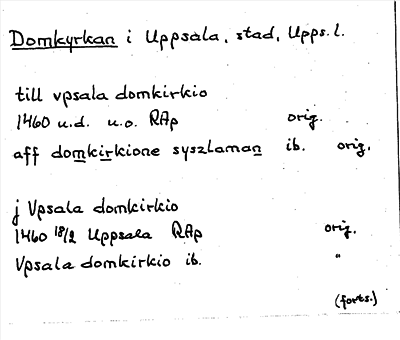 Domkyrkan i Uppsala, stad, Upps. l.
till vpsala domkirkio
1460 u.d. u.o. RAp orig.
aff domkirkione syszlaman ib. orig.
j Vpsala domkirkio
1460 18/2 Uppsala RAp orig.
Vpsala domkirkio ib. "
(forts.)